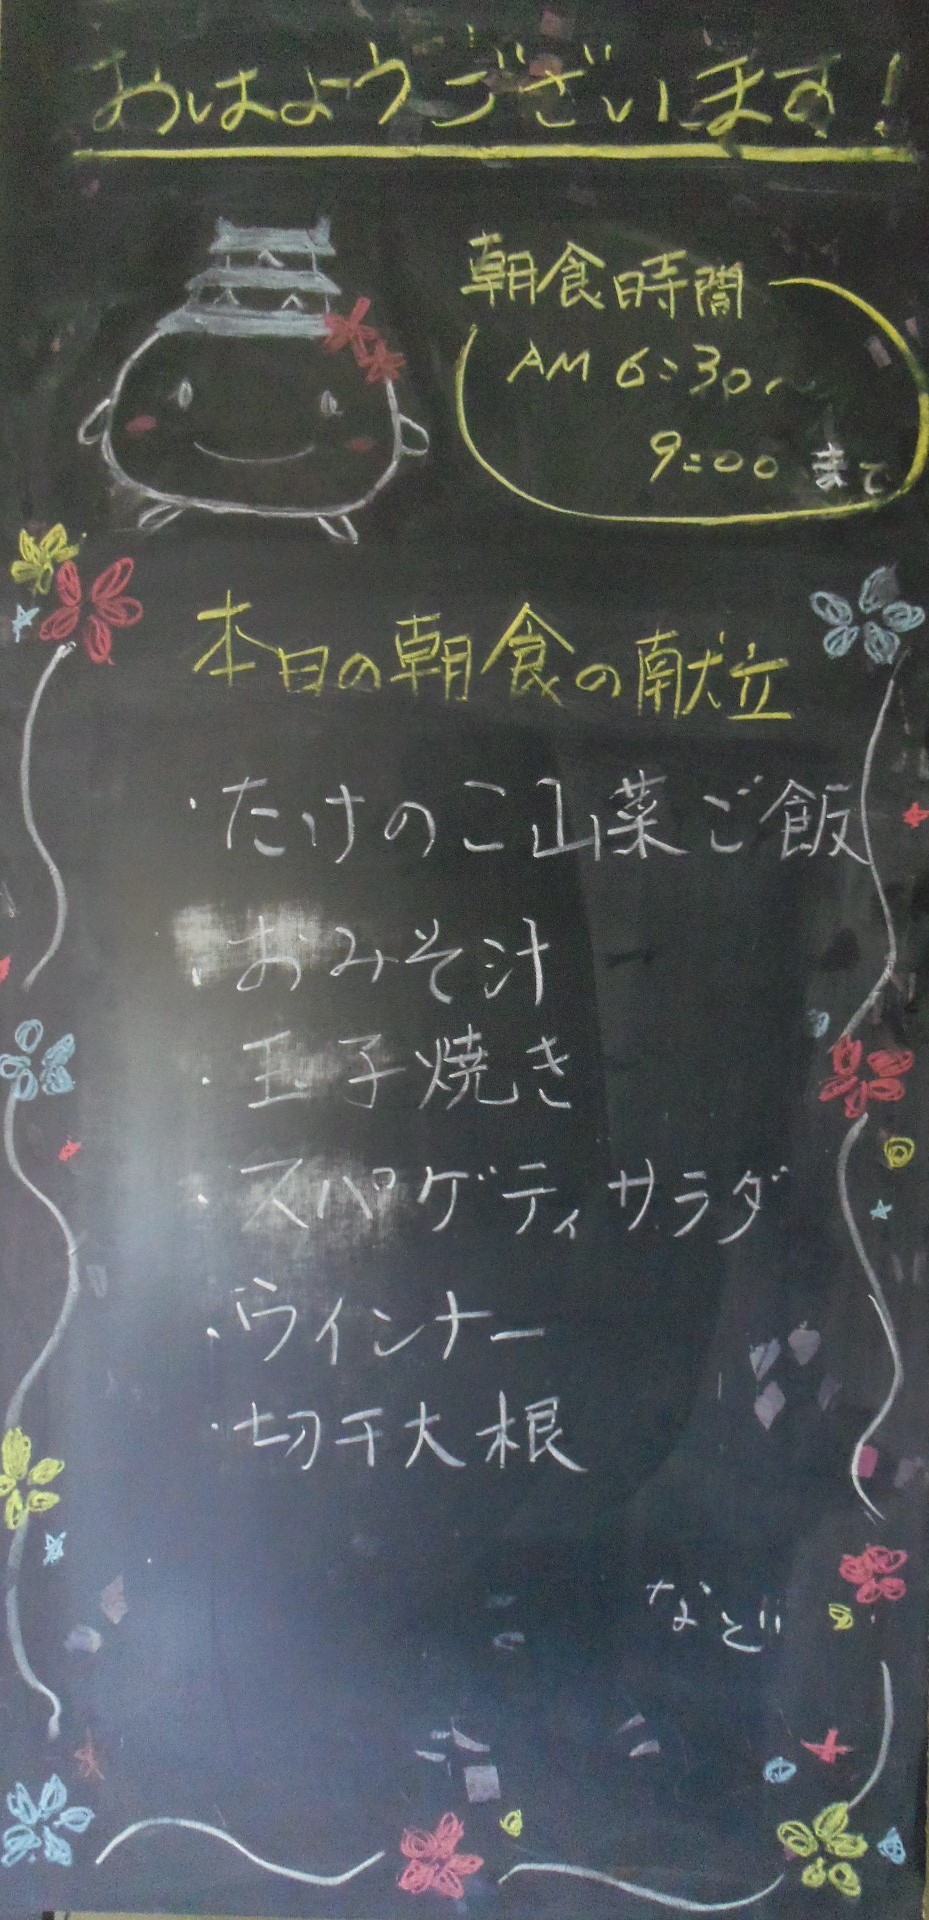 おはようございます！
朝食時間
AM 6:30〜
9:00 まで
本日の朝食の献立
・たけのこ山菜ご飯
・おみそ汁
・玉子焼き
・スパゲティサラダ
・ウインナー
・切干大根
など